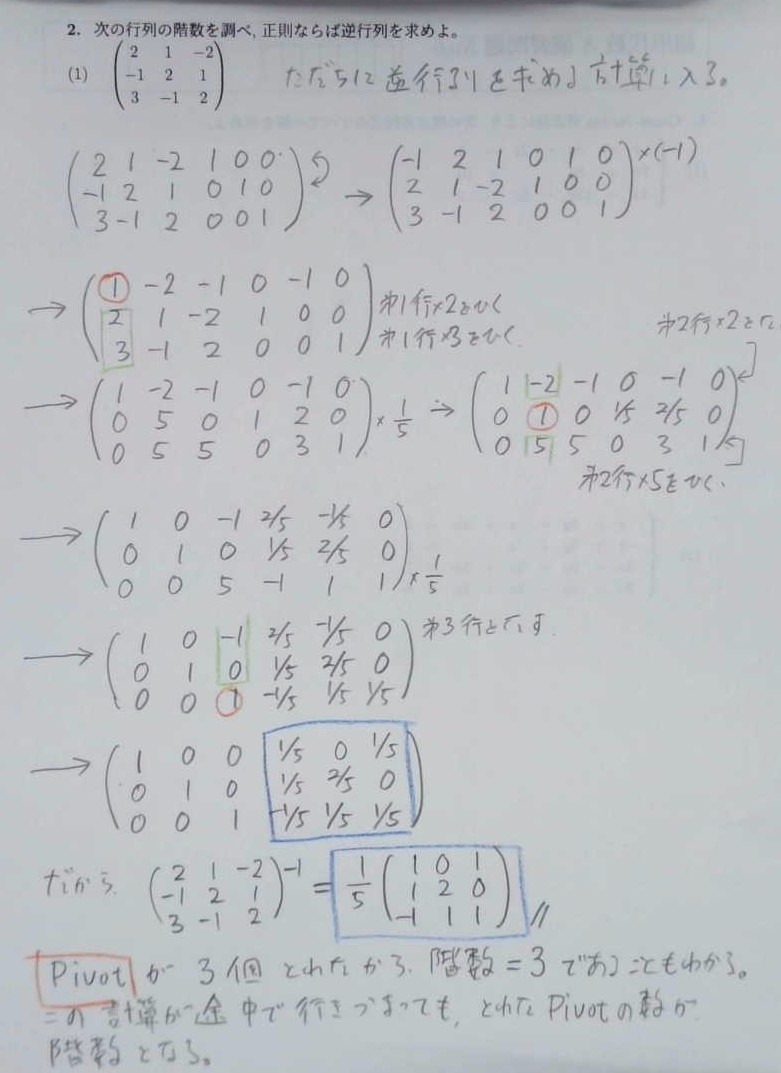 2. 次の行列の階数を調べ, 正則ならば逆行列を求めよ。
(1) ( 2 1 −2
−1 2 1
3 −1 2 )
ただちに逆行列を求める計算に入る。
( 2 1 −2 1 0 0
−1 2 1 0 1 0
3 −1 2 0 0 1 )
→ ( −1 2 1 0 1 0 ×(−1)
2 1 −2 1 0 0
3 −1 2 0 0 1 )
→ ( 1 −2 −1 0 −1 0
2 1 −2 1 0 0 第1行×2をひく
3 −1 2 0 0 1 ) 第1行×3をひく.
→ ( 1 −2 −1 0 −1 0
0 5 0 1 2 0 × 1/5
0 5 5 0 3 1 )
第2行×2をた
→ ( 1 −2 −1 0 −1 0
0 1 0 1/5 2/5 0
0 5 5 0 3 1 )
第2行×5をひく.
→ ( 1 0 −1 2/5 −1/5 0
0 1 0 1/5 2/5 0
0 0 5 −1 1 1 ) × 1/5
→ ( 1 0 −1 2/5 −1/5 0 第3行をたす.
0 1 0 1/5 2/5 0
0 0 1 −1/5 1/5 1/5 )
→ ( 1 0 0 1/5 0 1/5
0 1 0 1/5 2/5 0
0 0 1 −1/5 1/5 1/5 )
だから ( 2 1 −2
−1 2 1
3 −1 2 )−1 = 1/5 ( 1 0 1
1 2 0
−1 1 1 ) //
Pivot が 3個 とれたから. 階数=3 であることもわかる。
この計算が途中で行きづまっても, とれた Pivot の数が
階数となる。